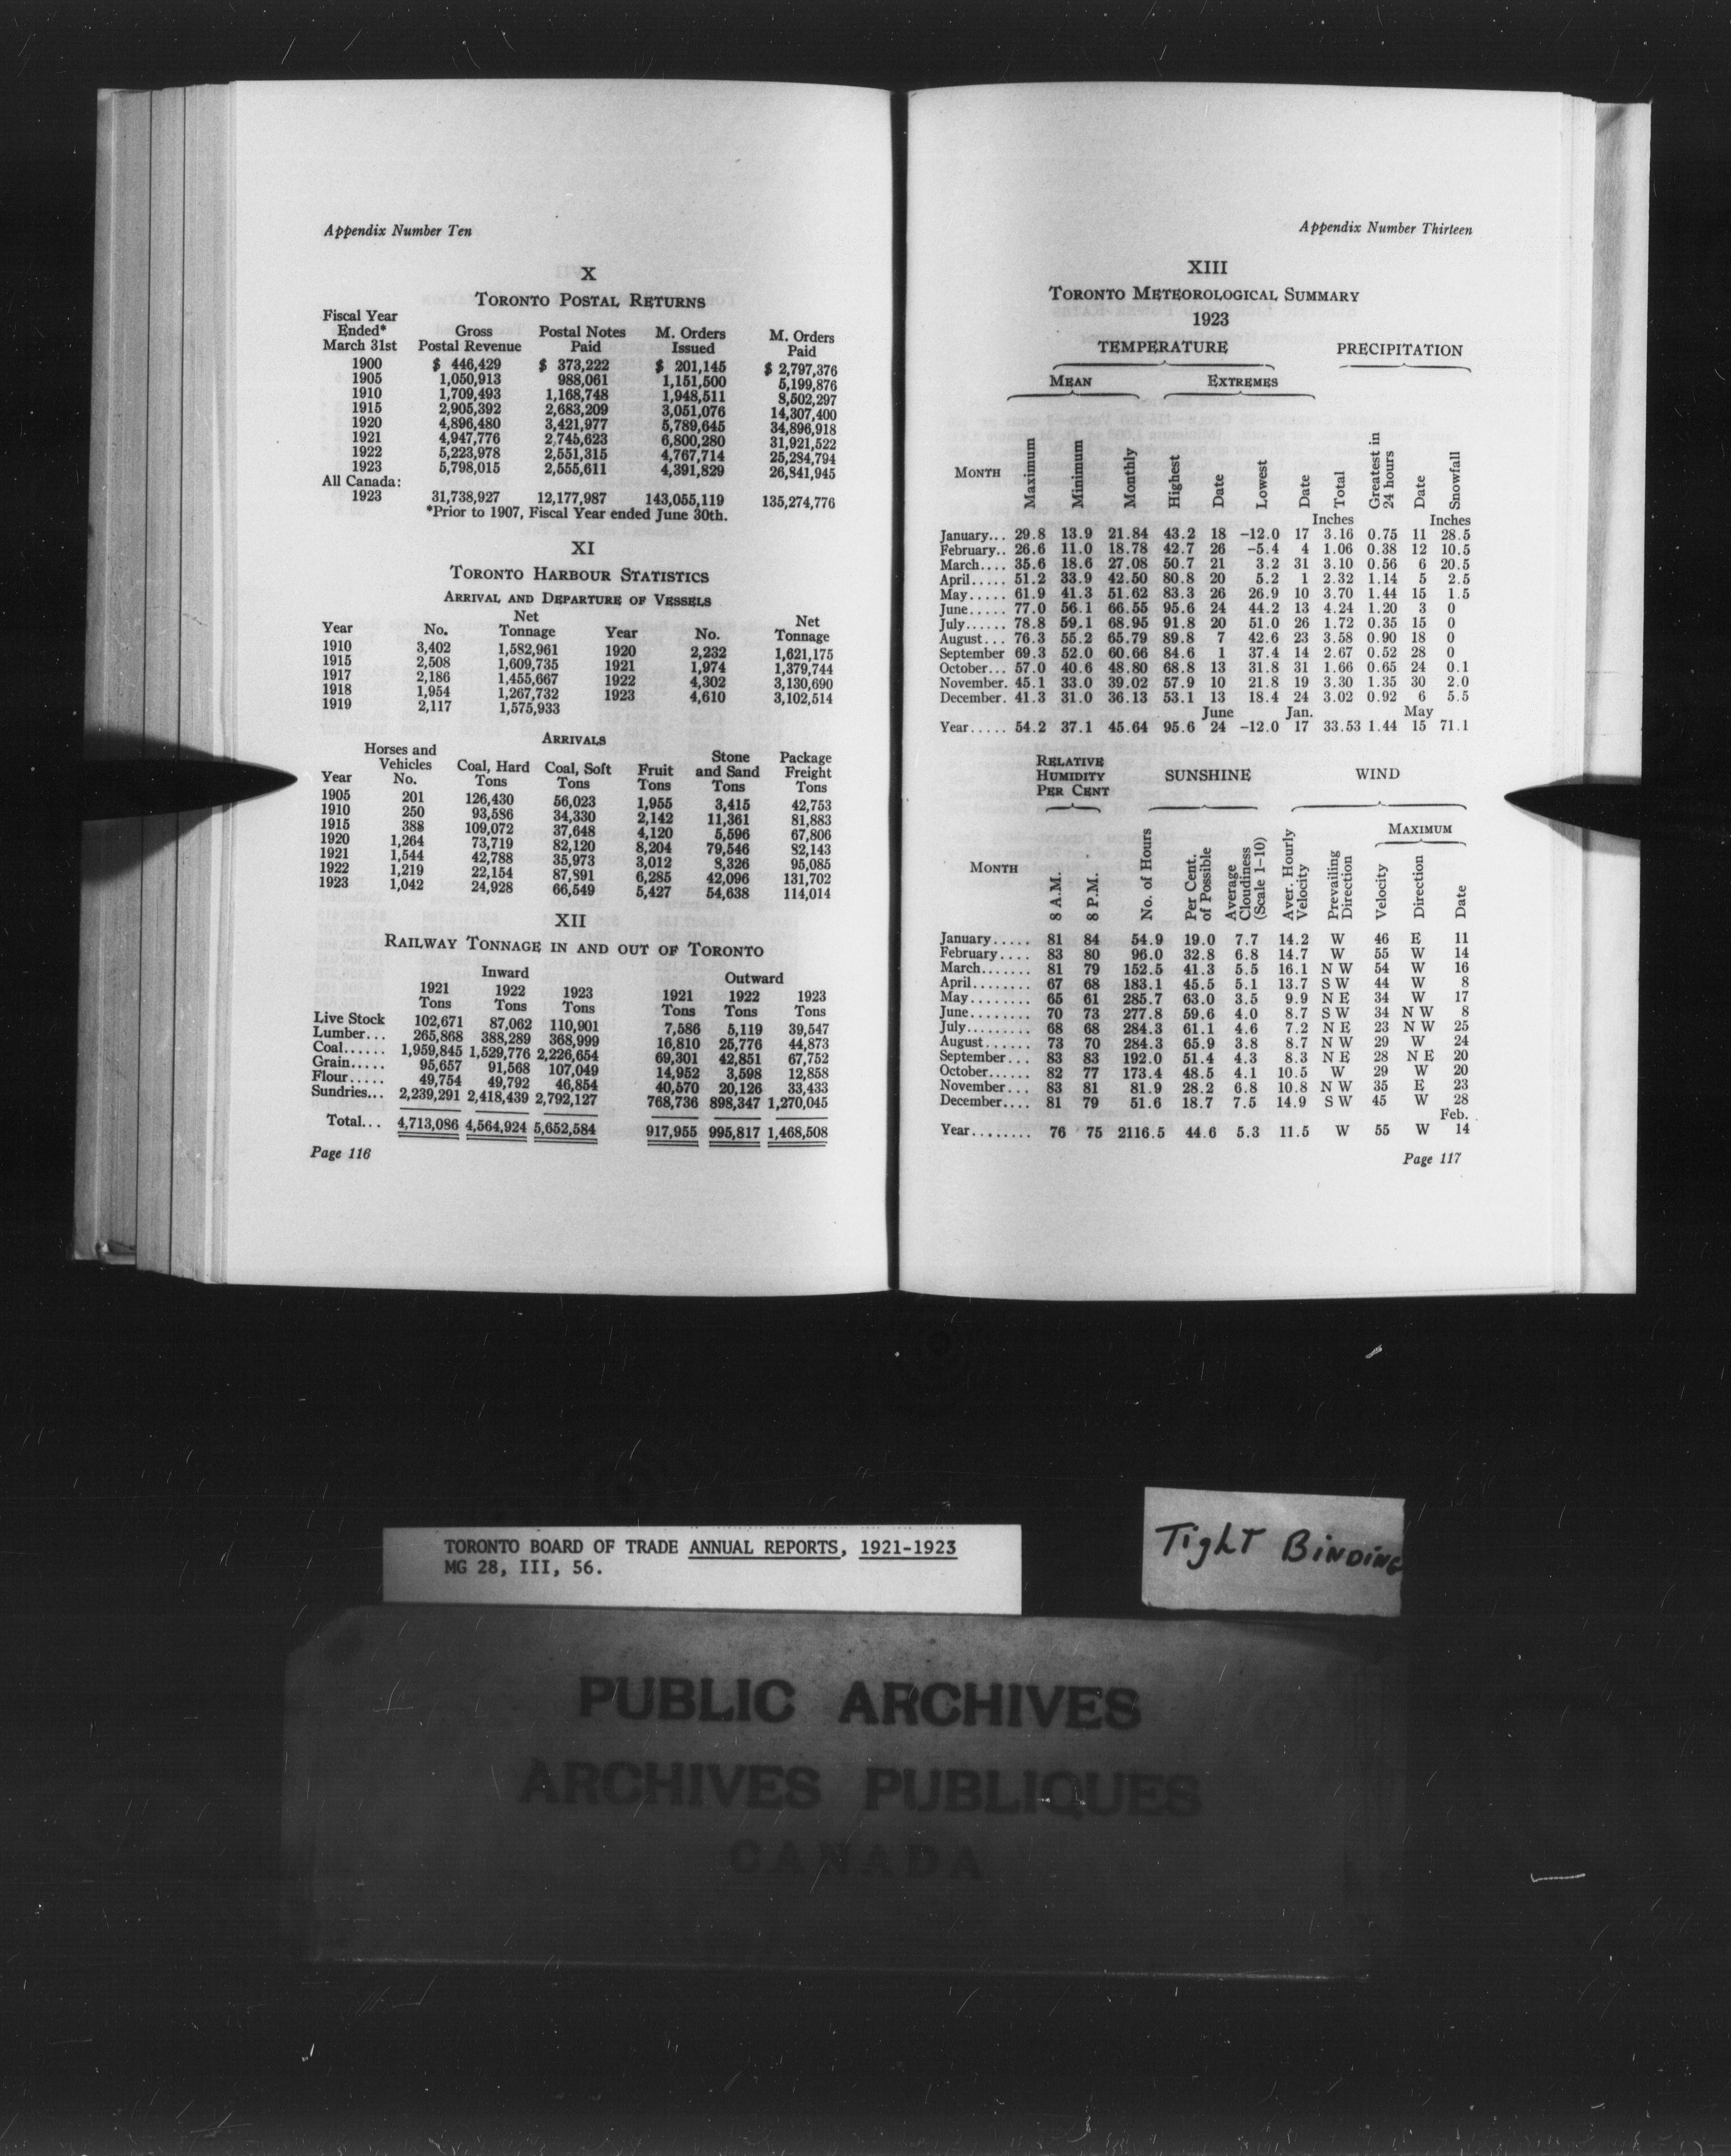 Appendix Number Ten
X
TORONTO POSTAL RETURNS
Fiscal Year Ended* March 31st Gross Postal Revenue Postal Notes Paid M. Orders Issued M. Orders Paid
1900 $ 446,429 $ 373,222 $ 201,145 $ 2,797,376
1905 1,050,913 988,061 1,151,500 5,199,876
1910 1,709,493 1,168,748 1,948,511 8,502,297
1915 2,905,392 2,683,209 3,051,076 14,307,400
1920 4,896,480 3,421,977 5,789,645 34,896,918
1921 4,947,776 2,745,623 6,800,280 31,921,522
1922 5,223,978 2,551,315 4,767,714 25,284,794
1923 5,798,015 2,555,611 4,391,829 26,841,945
All Canada:
1923 31,738,927 12,177,987 143,055,119 135,274,776
*Prior to 1907, Fiscal Year ended June 30th.
XI
TORONTO HARBOUR STATISTICS
ARRIVAL AND DEPARTURE OF VESSELS
Year No. Net Tonnage Year No. Net Tonnage
1910 3,402 1,582,961 1920 2,232 1,621,175
1915 2,508 1,609,735 1921 1,974 1,379,744
1917 2,186 1,455,667 1922 4,302 3,130,690
1918 1,954 1,267,732 1923 4,610 3,102,514
1919 2,117 1,575,933
ARRIVALS
Year Horses and Vehicles No. Coal, Hard Tons Coal, Soft Tons Fruit Tons Stone and Sand Tons Package Freight Tons
1905 201 126,430 56,023 1,955 3,415 42,753
1910 250 93,586 34,330 2,142 11,361 81,883
1915 388 109,072 37,648 4,120 5,596 67,806
1920 1,264 73,719 82,120 8,204 79,546 82,143
1921 1,544 42,788 35,973 3,012 8,326 95,085
1922 1,219 22,154 87,891 6,285 42,096 131,702
1923 1,042 24,928 66,549 5,427 54,638 114,014
XII
RAILWAY TONNAGE IN AND OUT OF TORONTO
Inward Outward
1921 1922 1923 1921 1922 1923
Tons Tons Tons Tons Tons Tons
Live Stock 102,671 87,062 110,901 7,586 5,119 39,547
Lumber... 265,868 388,289 368,999 16,810 25,776 44,873
Coal...... 1,959,845 1,529,776 2,226,654 69,301 42,851 67,752
Grain..... 95,657 91,568 107,049 14,952 3,598 12,858
Flour..... 49,754 49,792 46,854 40,570 20,126 33,433
Sundries... 2,239,291 2,418,439 2,792,127 768,736 898,347 1,270,045
Total... 4,713,086 4,564,924 5,652,584 917,955 995,817 1,468,508
Page 116
Appendix Number Thirteen
XIII
TORONTO METEOROLOGICAL SUMMARY
1923
TEMPERATURE PRECIPITATION
MEAN EXTREMES
MONTH Maximum Minimum Monthly Highest Date Lowest Date Total Greatest in 24 hours Date Snowfall
Inches Inches
January... 29.8 13.9 21.84 43.2 18 -12.0 17 3.16 0.75 11 28.5
February.. 26.6 11.0 18.78 42.7 26 -5.4 4 1.06 0.38 12 10.5
March.... 35.6 18.6 27.08 50.7 21 3.2 31 3.10 0.56 6 20.5
April..... 51.2 33.9 42.50 80.8 20 5.2 1 2.32 1.14 5 2.5
May..... 61.9 41.3 51.62 83.3 26 26.9 10 3.70 1.44 15 1.5
June..... 77.0 56.1 66.55 95.6 24 44.2 13 4.24 1.20 3 0
July...... 78.8 59.1 68.95 91.8 20 51.0 26 1.72 0.35 15 0
August... 76.3 55.2 65.79 89.8 7 42.6 23 3.58 0.90 18 0
September 69.3 52.0 60.66 84.6 1 37.4 14 2.67 0.52 28 0
October... 57.0 40.6 48.80 68.8 13 31.8 31 1.66 0.65 24 0.1
November. 45.1 33.0 39.02 57.9 10 21.8 19 3.30 1.35 30 2.0
December. 41.3 31.0 36.13 53.1 13 18.4 24 3.02 0.92 6 5.5
June Jan. May
Year..... 54.2 37.1 45.64 95.6 24 -12.0 17 33.53 1.44 15 71.1
RELATIVE HUMIDITY PER CENT SUNSHINE WIND
MAXIMUM
MONTH 8 A.M. 8 P.M. No. of Hours Per Cent. of Possible Average Cloudiness (Scale 1-10) Aver. Hourly Velocity Prevailing Direction Velocity Direction Date
January..... 81 84 54.9 19.0 7.7 14.2 W 46 E 11
February.... 83 80 96.0 32.8 6.8 14.7 W 55 W 14
March....... 81 79 152.5 41.3 5.5 16.1 N W 54 W 16
April........ 67 68 183.1 45.5 5.1 13.7 S W 44 W 8
May........ 65 61 285.7 63.0 3.5 9.9 N E 34 W 17
June........ 70 73 277.8 59.6 4.0 8.7 S W 34 N W 8
July......... 68 68 284.3 61.1 4.6 7.2 N E 23 N W 25
August...... 73 70 284.3 65.9 3.8 8.7 N W 29 W 24
September... 83 83 192.0 51.4 4.3 8.3 N E 28 N E 20
October...... 82 77 173.4 48.5 4.1 10.5 W 29 W 20
November... 83 81 81.9 28.2 6.8 10.8 N W 35 E 23
December.... 81 79 51.6 18.7 7.5 14.9 S W 45 W 28
Feb.
Year........ 76 75 2116.5 44.6 5.3 11.5 W 55 W 14
Page 117
TORONTO BOARD OF TRADE ANNUAL REPORTS, 1921-1923
MG 28, III, 56.
Tight Binding
PUBLIC ARCHIVES
ARCHIVES PUBLIQUES
CANADA